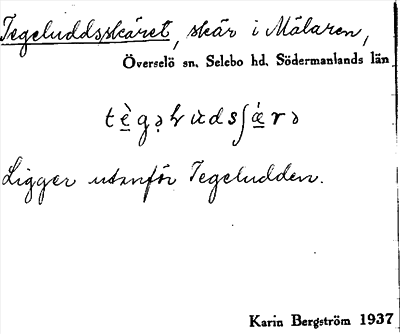 Tegeluddsskäret, skär i Mälaren,
Överselö sn, Selebo hd, Södermanlands län
Ligger utanför Tegeludden.
Karin Bergström 1937